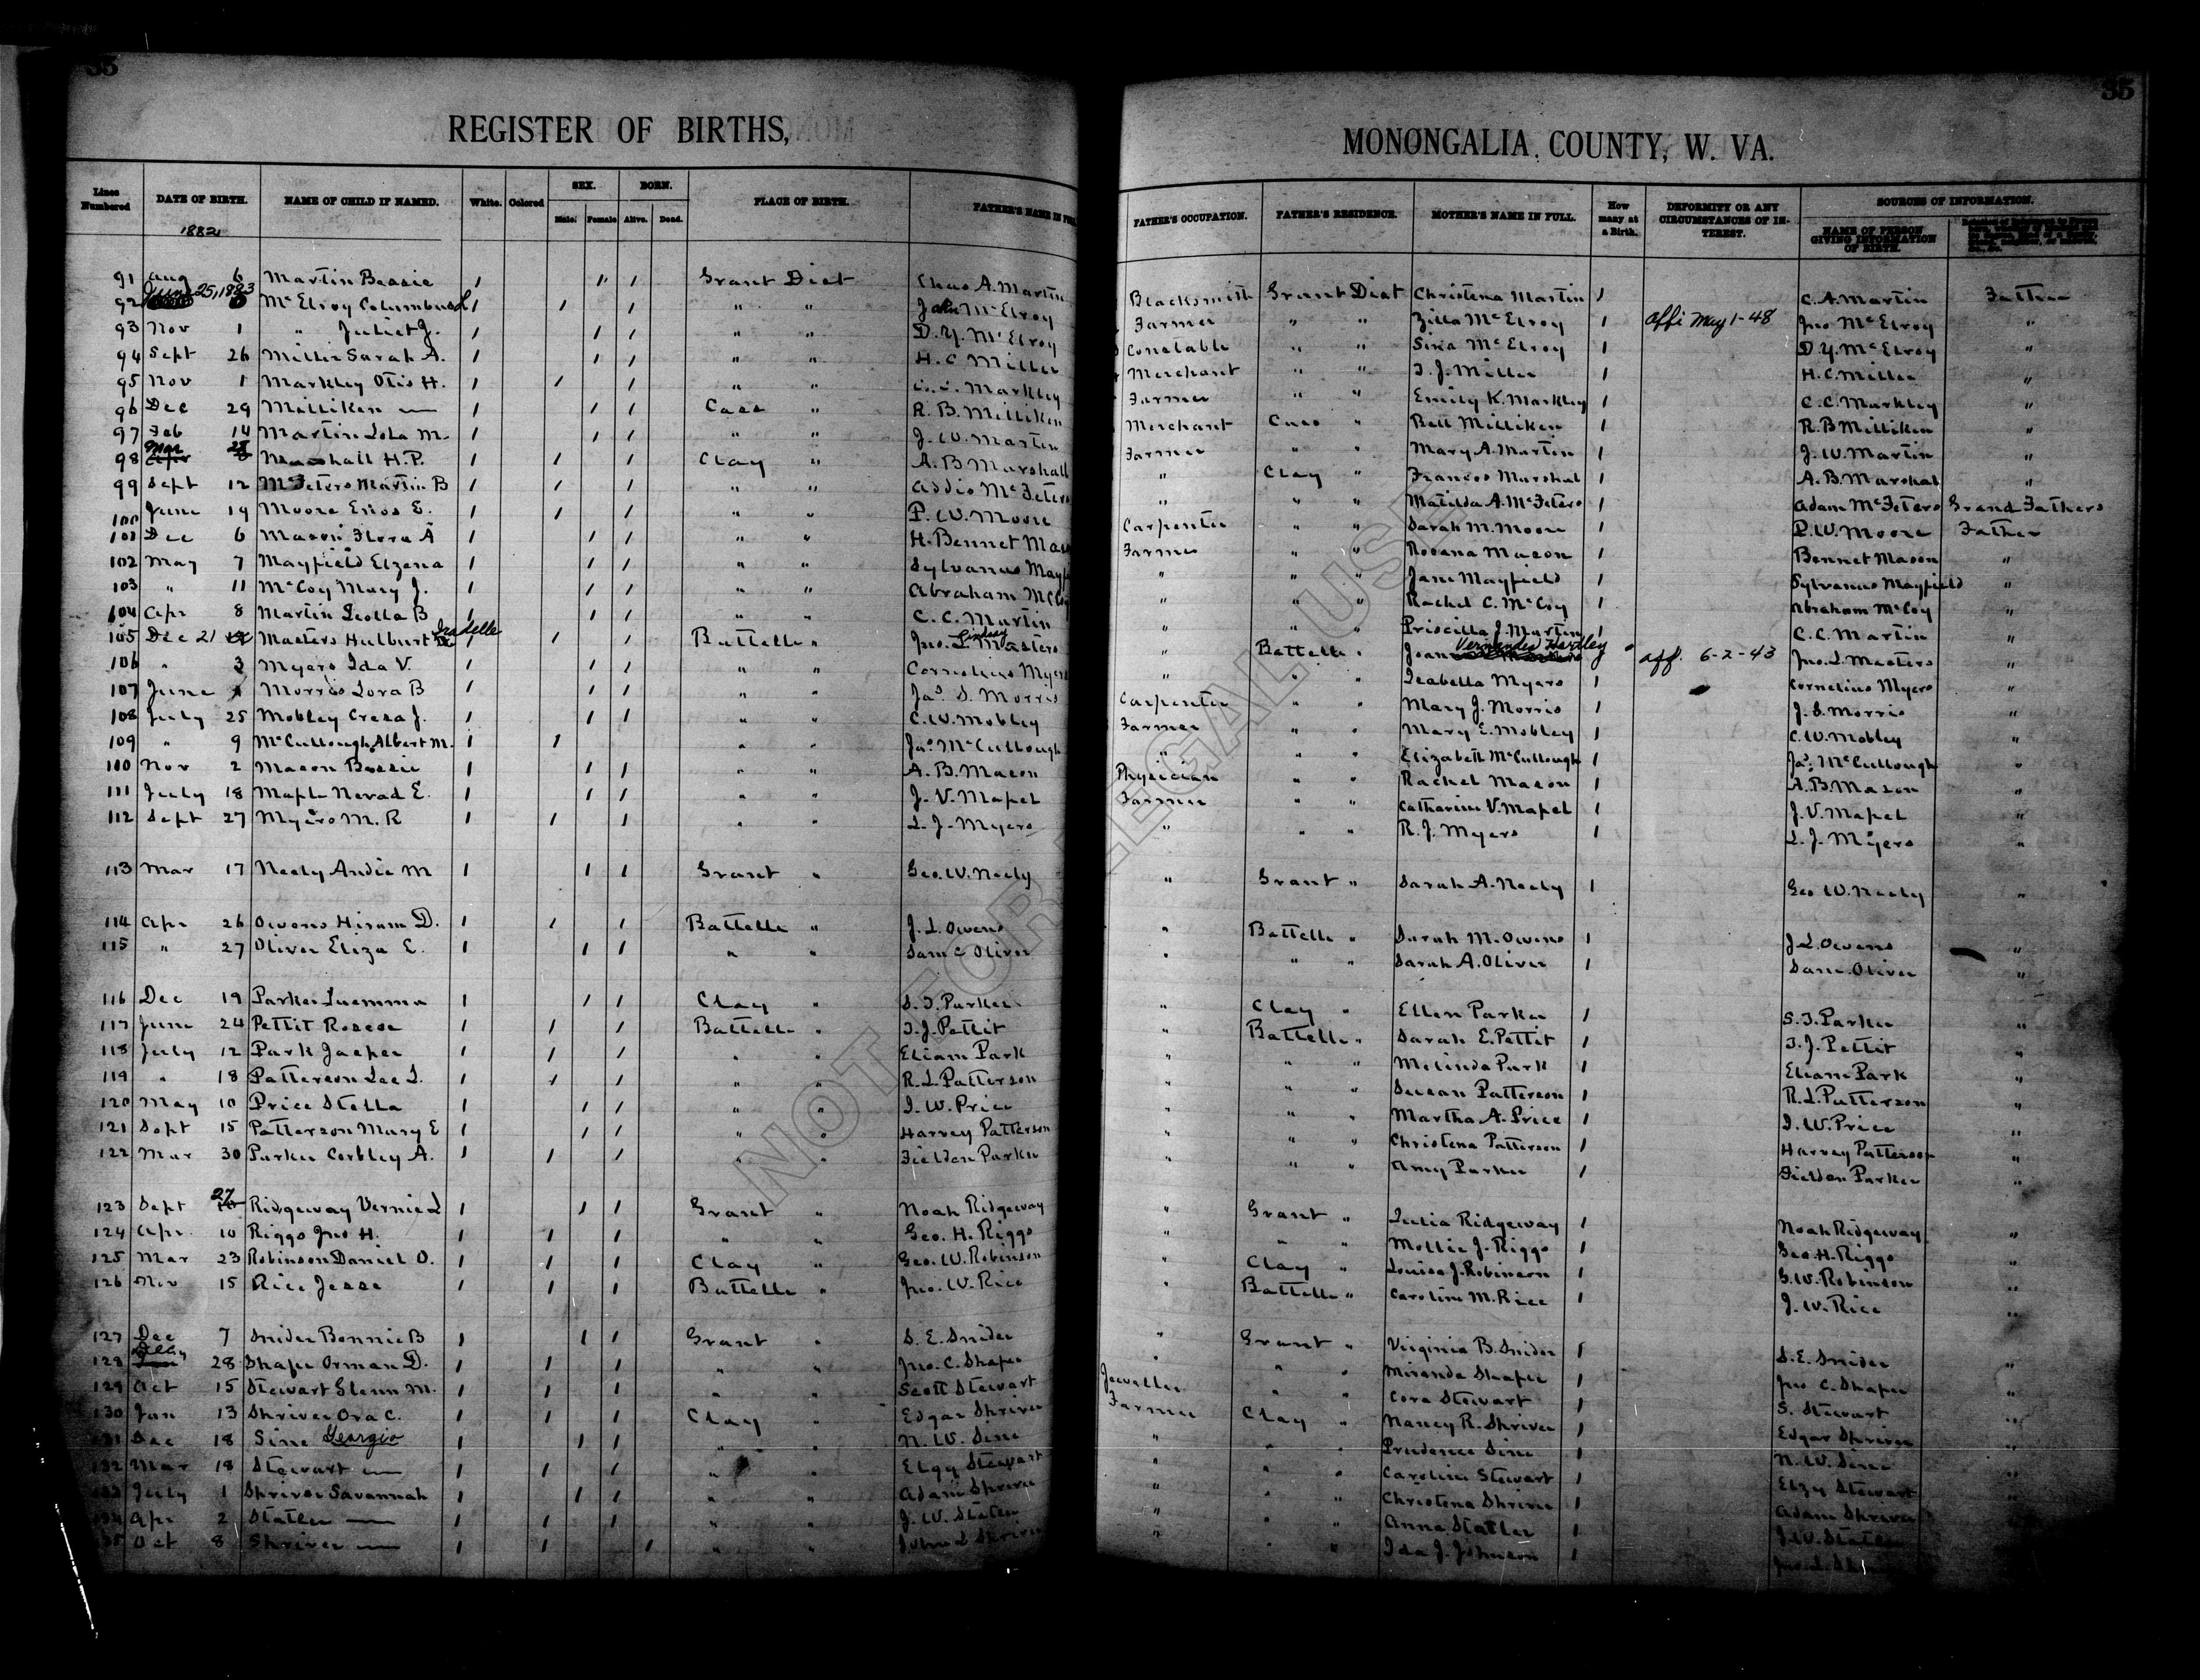 35
35
REGISTER OF BIRTHS,
MONONGALIA COUNTY, W. VA.
Lines Numbered DATE OF BIRTH. NAME OF CHILD IF NAMED. White. Colored SEX. Male. Female BORN. Alive. Dead. PLACE OF BIRTH. FATHER'S NAME IN FULL FATHER'S OCCUPATION. FATHER'S RESIDENCE. MOTHER'S NAME IN FULL. How many at a Birth. DEFORMITY OR ANY CIRCUMSTANCES OF INTEREST. SOURCES OF INFORMATION. NAME OF PERSON GIVING INFORMATION OF BIRTH.
1882
91 Aug 6 Martin Bessie 1 " 1 Grant Dist Chas A. Martin Blacksmith Grant Dist Christena Martin 1 C. A. Martin Father
92 June 25, 1883 McElroy Columbus L 1 1 1 " " John McElroy Farmer " " Zilla McElroy 1 affi May 1-48 Jno McElroy "
93 Nov 1 " Juliet J. 1 1 1 " " D. Y. McElroy Constable " " Sina McElroy 1 D. Y. McElroy "
94 Sept 26 Miller Sarah A. 1 1 1 " " H. C Miller Merchant " " T. J. Miller 1 H. C. Miller "
95 Nov 1 Markley Otis H. 1 1 1 " " C. C. Markley Farmer " " Emily K. Markley 1 C. C. Markley "
96 Dec 29 Milliken — 1 1 1 Cass " R. B. Milliken Merchant Cass " Bell Milliken 1 R. B Milliken "
97 Feb 14 Martin Lola M. 1 1 1 " " J. W. Martin Farmer " " Mary A. Martin 1 J. W. Martin "
98 Mar 28 Marshall H. P. 1 1 1 Clay " A. B Marshall " Clay " Frances Marshal 1 A. B. Marshal "
99 Sept 12 McFeters Martin B 1 1 1 " " Addis McFeters " " " Matilda A. McFeters 1 Adam McFeters Grand Fathers
100 June 19 Moore Enos E. 1 1 1 " " P. W. Moore Carpenter " " Sarah M. Moore 1 P. W. Moore Father
101 Dec 6 Mason Flora A 1 1 1 " " H. Bennet Mason Farmer " " Rosana Mason 1 Bennet Mason "
102 May 7 Mayfield Elzena 1 1 1 " " Sylvanus Mayf " " " Jane Mayfield 1 Sylvanus Mayfield "
103 " 11 McCoy Mary J. 1 1 1 " " Abraham McCoy " " " Rachel C. McCoy 1 Abraham McCoy "
104 Apr 8 Martin Leolla B 1 1 1 " " C. C. Martin " " " Priscilla J. Martin 1 C. C. Martin "
105 Dec 21 Masters Hulburt Iradelle 1 1 1 Battelle " Jno. Lindsey Masters " Battelle " Joan Vernendes Hardley aff. 6-2-43 Jno. L. Masters "
106 " 3 Myers Ida V. 1 1 1 " " Cornelius Myers " " " Isabella Myers 1 Cornelius Myers "
107 June 1 Morris Lora B 1 1 1 " " Jas. S. Morris Carpenter " " Mary J. Morris 1 J. S. Morris "
108 July 25 Mobley Cresa J. 1 1 1 " " C. W. Mobley Farmer " " Mary E. Mobley 1 C. W. Mobley "
109 " 9 McCullough Albert M. 1 1 " " Jas. McCullough " " " Elizabeth McCullough 1 Jas. McCullough "
110 Nov 2 Mason Bessie 1 1 1 " " A. B. Mason Physician " " Rachel Mason 1 A. B. Mason "
111 July 18 Maple Nevad E. 1 1 1 " " J. V. Mapel Farmer " " Catharine V. Mapel 1 J. V. Mapel "
112 Sept 27 Myers M. R 1 1 1 " " L. J. Myers " " " R. J. Myers 1 L. J. Myers "
113 Mar 17 Neely Andie M 1 1 1 Grant " Geo. W. Neely " Grant " Sarah A. Neely 1 Geo W. Neely "
114 Apr 26 Owens Hiram D. 1 1 1 Battelle " J. L. Owens " Battelle " Sarah M. Owens 1 J. L. Owens "
115 " 27 Oliver Eliza E. 1 1 1 " " Saml Oliver " " " Sarah A. Oliver 1 Sam. Oliver "
116 Dec 19 Parker Luemma 1 1 1 Clay " S. T. Parker " Clay " Ellen Parker 1 S. T. Parker "
117 June 24 Pettit Roscoe 1 1 1 Battelle " T. J. Pettit " Battelle " Sarah E. Pettit 1 T. J. Pettit "
118 July 12 Park Jasper 1 1 1 " " Eliam Park " " " Melinda Park 1 Eliam Park "
119 " 18 Patterson Lee L. 1 1 1 " " R. L. Patterson " " " Susan Patterson 1 R. L. Patterson "
120 May 10 Price Stella 1 1 1 " " I. W. Price " " " Martha A. Price 1 I. W. Price "
121 Sept 15 Patterson Mary E 1 1 1 " " Harvey Patterson " " " Christena Patterson 1 Harvey Patterson "
122 Mar 30 Parker Corbley A. 1 1 1 " " Fielden Parker " " " Amy Parker 1 Fielden Parker "
123 Sept 27 Ridgeway Vernie L 1 1 1 Grant " Noah Ridgeway " Grant " Julia Ridgeway 1 Noah Ridgeway "
124 Apr. 10 Riggs Jno H. 1 1 1 " " Geo. H. Riggs " " Mollie J. Riggs 1 Geo. H. Riggs "
125 Mar 23 Robinson Daniel O. 1 1 1 Clay " Geo. W. Robinson " Clay " Louisa J. Robinson 1 G. W. Robinson "
126 Nov 15 Rice Jesse 1 1 1 Battelle " Jno. W. Rice " Battelle " Caroline M. Rice 1 J. W. Rice "
127 Dec 7 Snider Bonnie B 1 1 1 Grant " S. E. Snider " Grant " Virginia B. Snider 1 S. E. Snider "
128 28 Shafer Orman D. 1 1 1 " " Jno. C. Shafer " " " Miranda Shafer 1 Jno C. Shafer "
129 Oct 15 Stewart Glenn M. 1 1 1 " " Scott Stewart Jeweller " " Cora Stewart 1 S. Stewart "
130 Jan 13 Shriver Ora C. 1 1 1 Clay " Edgar Shriver Farmer Clay " Nancy R. Shriver 1 Edgar Shriver "
131 Dec 18 Sine Georgie 1 1 1 " " N. W. Sine " " " Prudence Sine 1 N. W. Sine "
132 Mar 18 Stewart — 1 1 1 " " Elzy Stewart " " " Caroline Stewart 1 Elzy Stewart "
133 July 1 Shriver Savannah 1 1 1 " " Adam Shriver " " " Christena Shriver 1 Adam Shriver "
134 Apr 2 Statler — 1 1 1 " " J. W. Statler " " " Anna Statler 1 J. W. Statler
135 Oct 8 Shriver — 1 1 1 " " John L Shriver " " " Ida J. Johnson 1 Jno. L. Sh
NOT FOR LEGAL USE